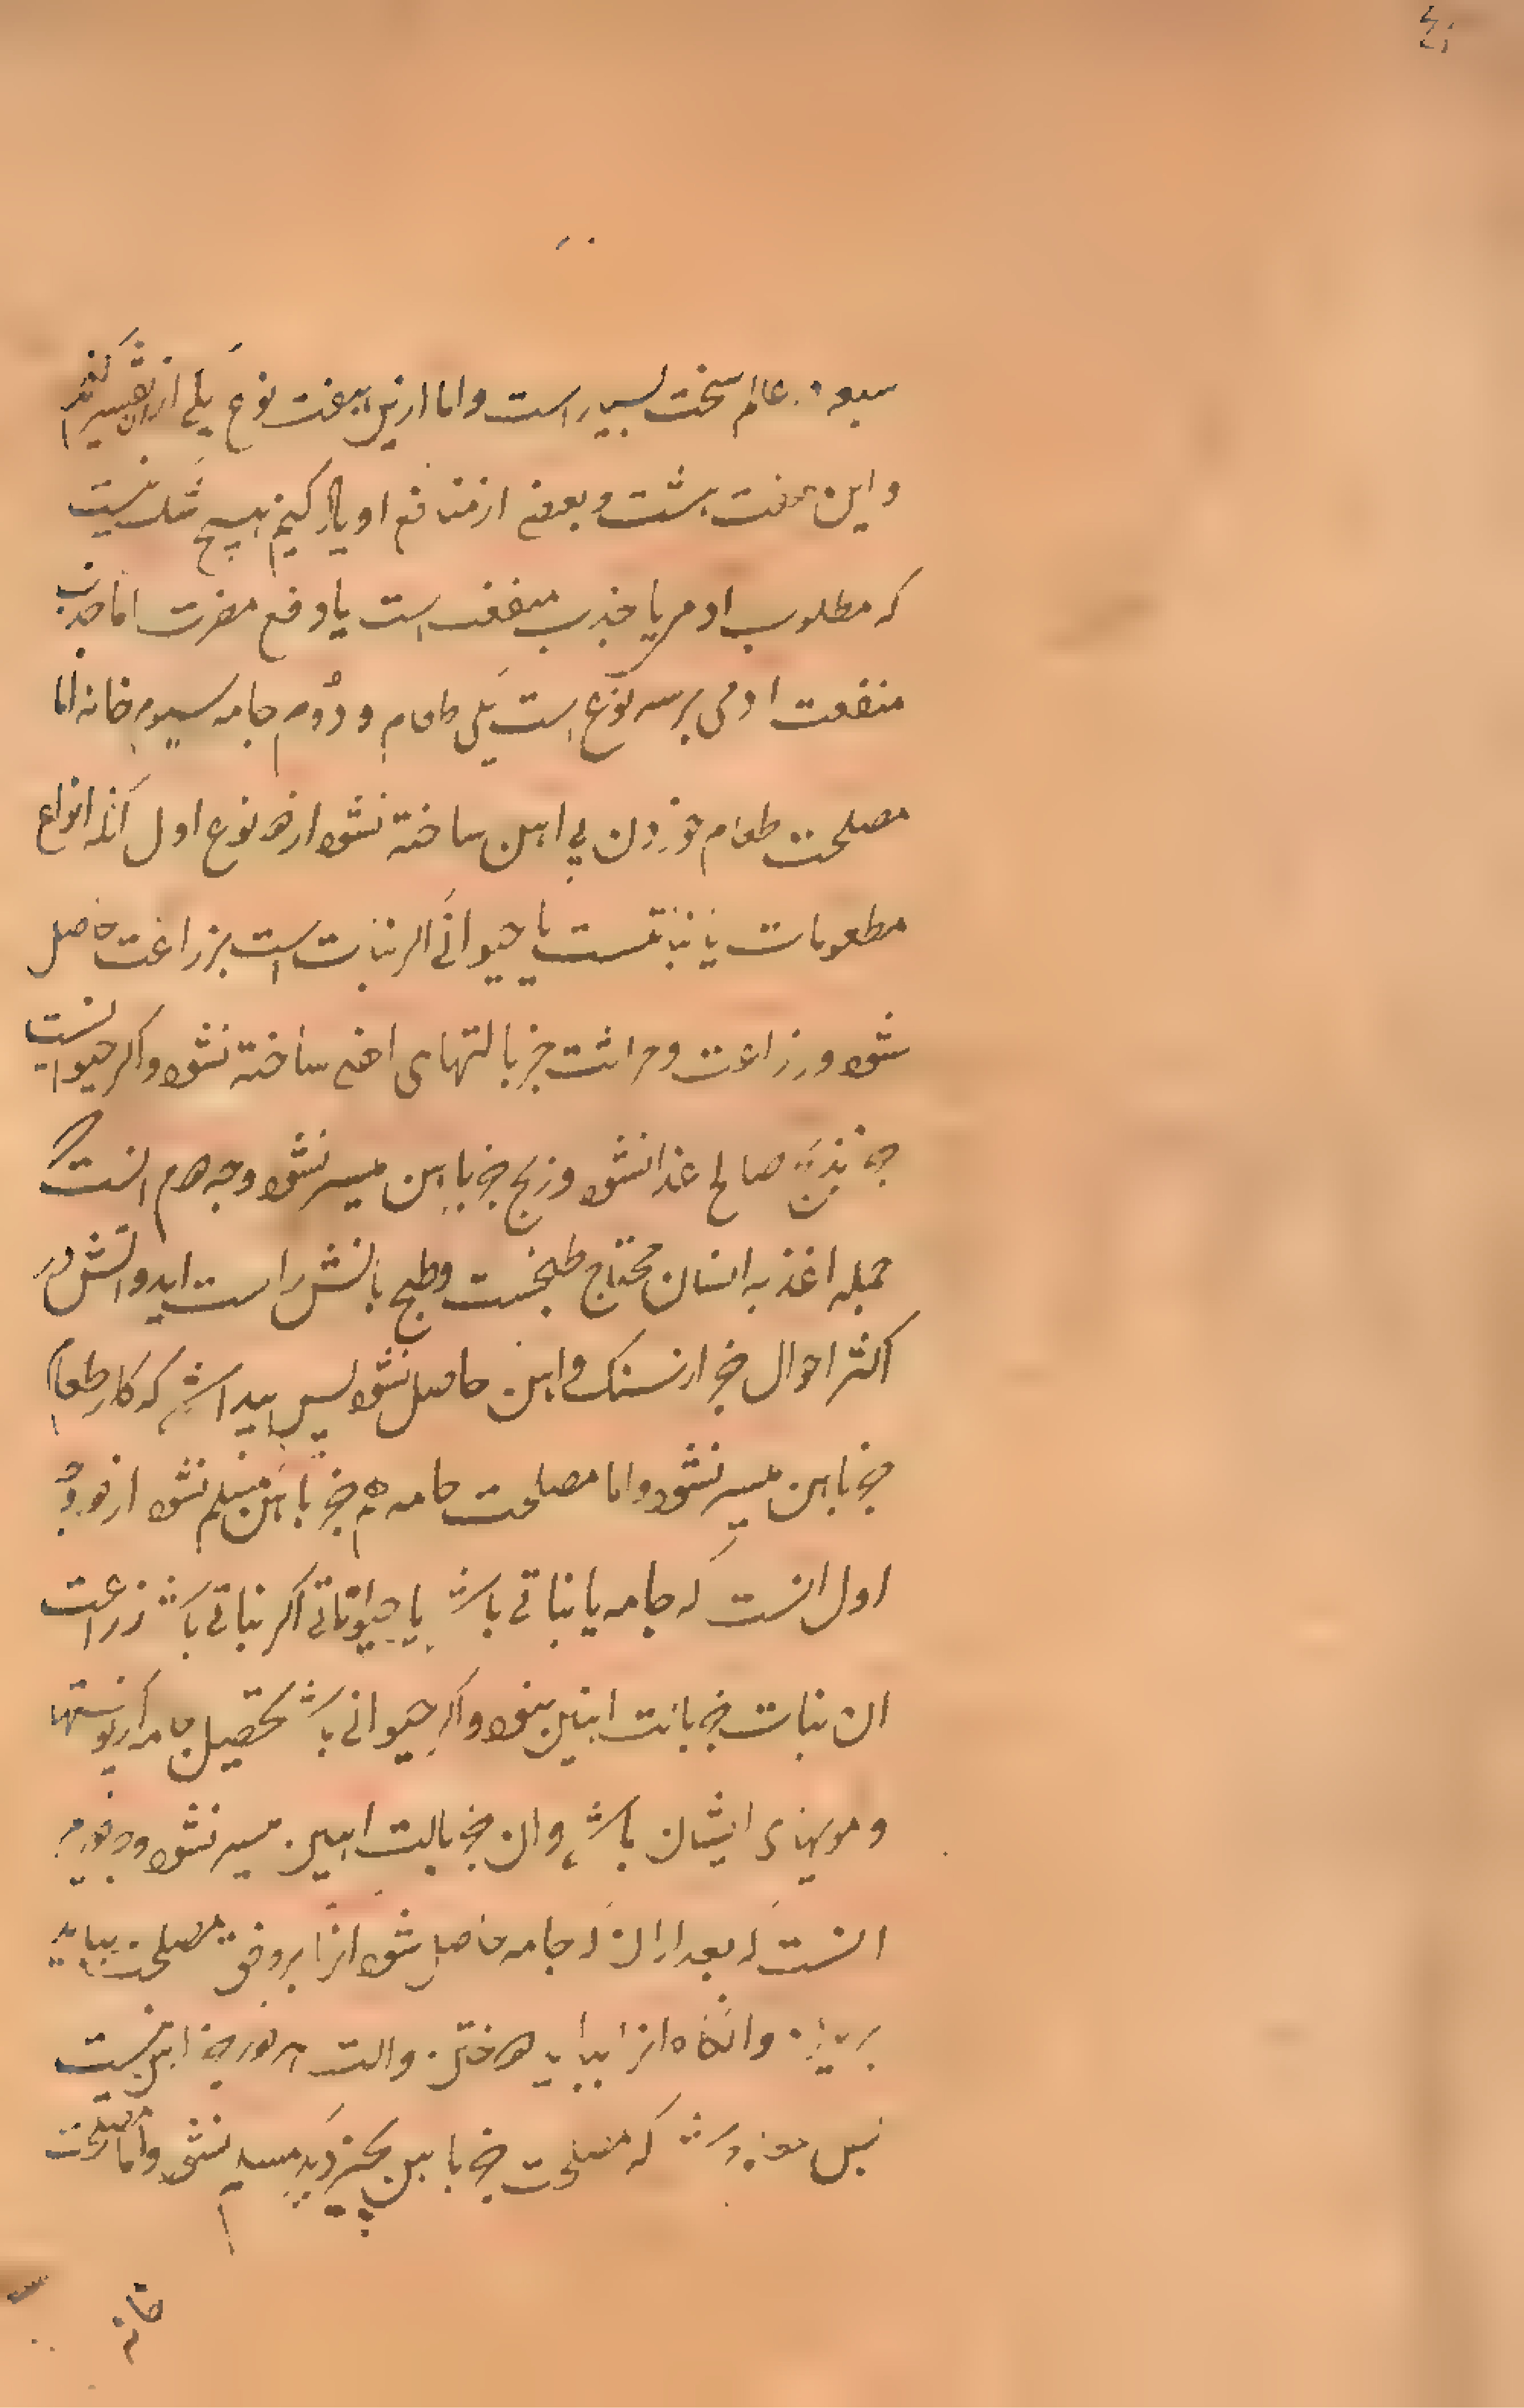 سبعه در عالم سخت بسیار است و اما ازین هفت نوع یکی از ان تفسیر کنیم
و این هفت بشت و بعضی از منافع او یاذ کنیم هیچ شک نیست
که مطلوب ادمی یا جذب منفعت است یا دفع مضرت اما جذب
منفعت ادمی بر سه نوع است یکی طعام و دوم جامه سیوم خانه اما
مصلحت طعام خوردن بی اهن ساخته نشود از دو نوع اول انکه انواع
مطعومات یا نباتیست یا حیوانی اکر نبات است بزراعت حاصل
شود و زراعت و حراثت جز بالتهای اهنی ساخته نشود و اکر حیوانیست
جز صالح غذا نشود و ذبح جز باهن میسر نشود وجه دوم انست که
جمله اغذیه انسان محتاج طبخست و طبخ باتش راست اید و اتش در
اکثر احوال جز از سنک و اهن حاصل نشود پس پیدا شد که کار طعام
جز باهن میسر نشود و اما مصلحت جامه هم جز باهن مسلم نشود از دو وجه
اول انست که جامه یا نباتی باشد یا حیواناتی اکر نباتی باشد زراعت
ان نبات جز بالت اهنین نبود و اکر حیوانی باشد تحصیل جامه از پوستها
و مویهای ایشان باشد و ان جز بالت اهنین میسر نشود وجه دوم
انست که بعد از ان که جامه حاصل شود انرا بر وفق مصلحت بباید
برید و انکاه انرا بباید دوختن و الت هر دو جز اهن نیست
پس معلوم شد که مصلحت جز باهن بچیز دیکر میسر نشود و اما مصلحت
خانه